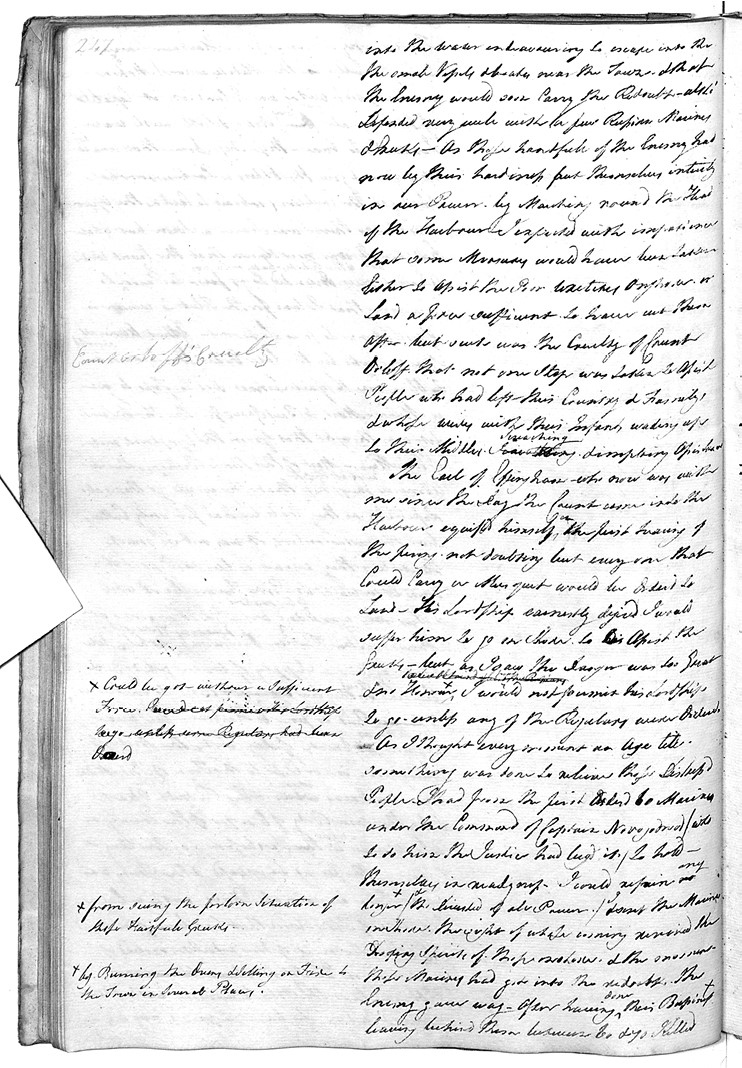 247
into the water endeavouring to escape into the
the small Vessels & boats near the Town & that
the Enemy would soon Carry the Redoubt - altho'
defended very well with a few Russian Marines
& Greeks - As these handfull of the Enemy had
now by their hardiness put themselves intirely
in our Power by Marching round the Head
of the Harbour I expected with impatience
that some Measures would have been taken
Either to Assist the Poor wretches on shore or
Land a force sufficient to have cut them
off - but such was the Cruelty of Count
Orloff that not one Step was taken to Assist
People who had left their Country & Familys
& whose wives with their Infants wading up
to their Middles Screaching & imploring Assistance
Count Orloff's Cruelty
The Earl of Effingham who now was with
me since the day the Count came into the
Harbour equip'd himself on the first hearing of
the firing not doubting but every one that
Could Carry a Musquet would be Orderd to
Land - His Lordship earnestly desired I would
suffer him to go on Shore to Assist the
Greeks - but as I saw the danger was too Great
for Honour + I would not permit his Lordship
to go unless any of the Regulars were Orderd
+ Could be got without a Sufficient
Force
As I thought every moment an Age till
something was done to relieve these distress'd
People I had from the first Orderd 60 Marines
under the Command of Captain
to do him the Justice had beg'd it / to hold
themselves in readyness. I could refrain no
longer + / tho Divested of all Power / I sent the Marines
on shore. The sight of whose coming revived the
Drooping Spirits of those on shore & the moment
these Marines had got into the redoubt the
Enemy gave way - After having done their Business +
leaving behind them between 60 & 70 Killed
+ from seeing the forlorn Situation of
these Faithfull Greeks
+ by Burning the & Setting on Fire to
the Town in Several Places.